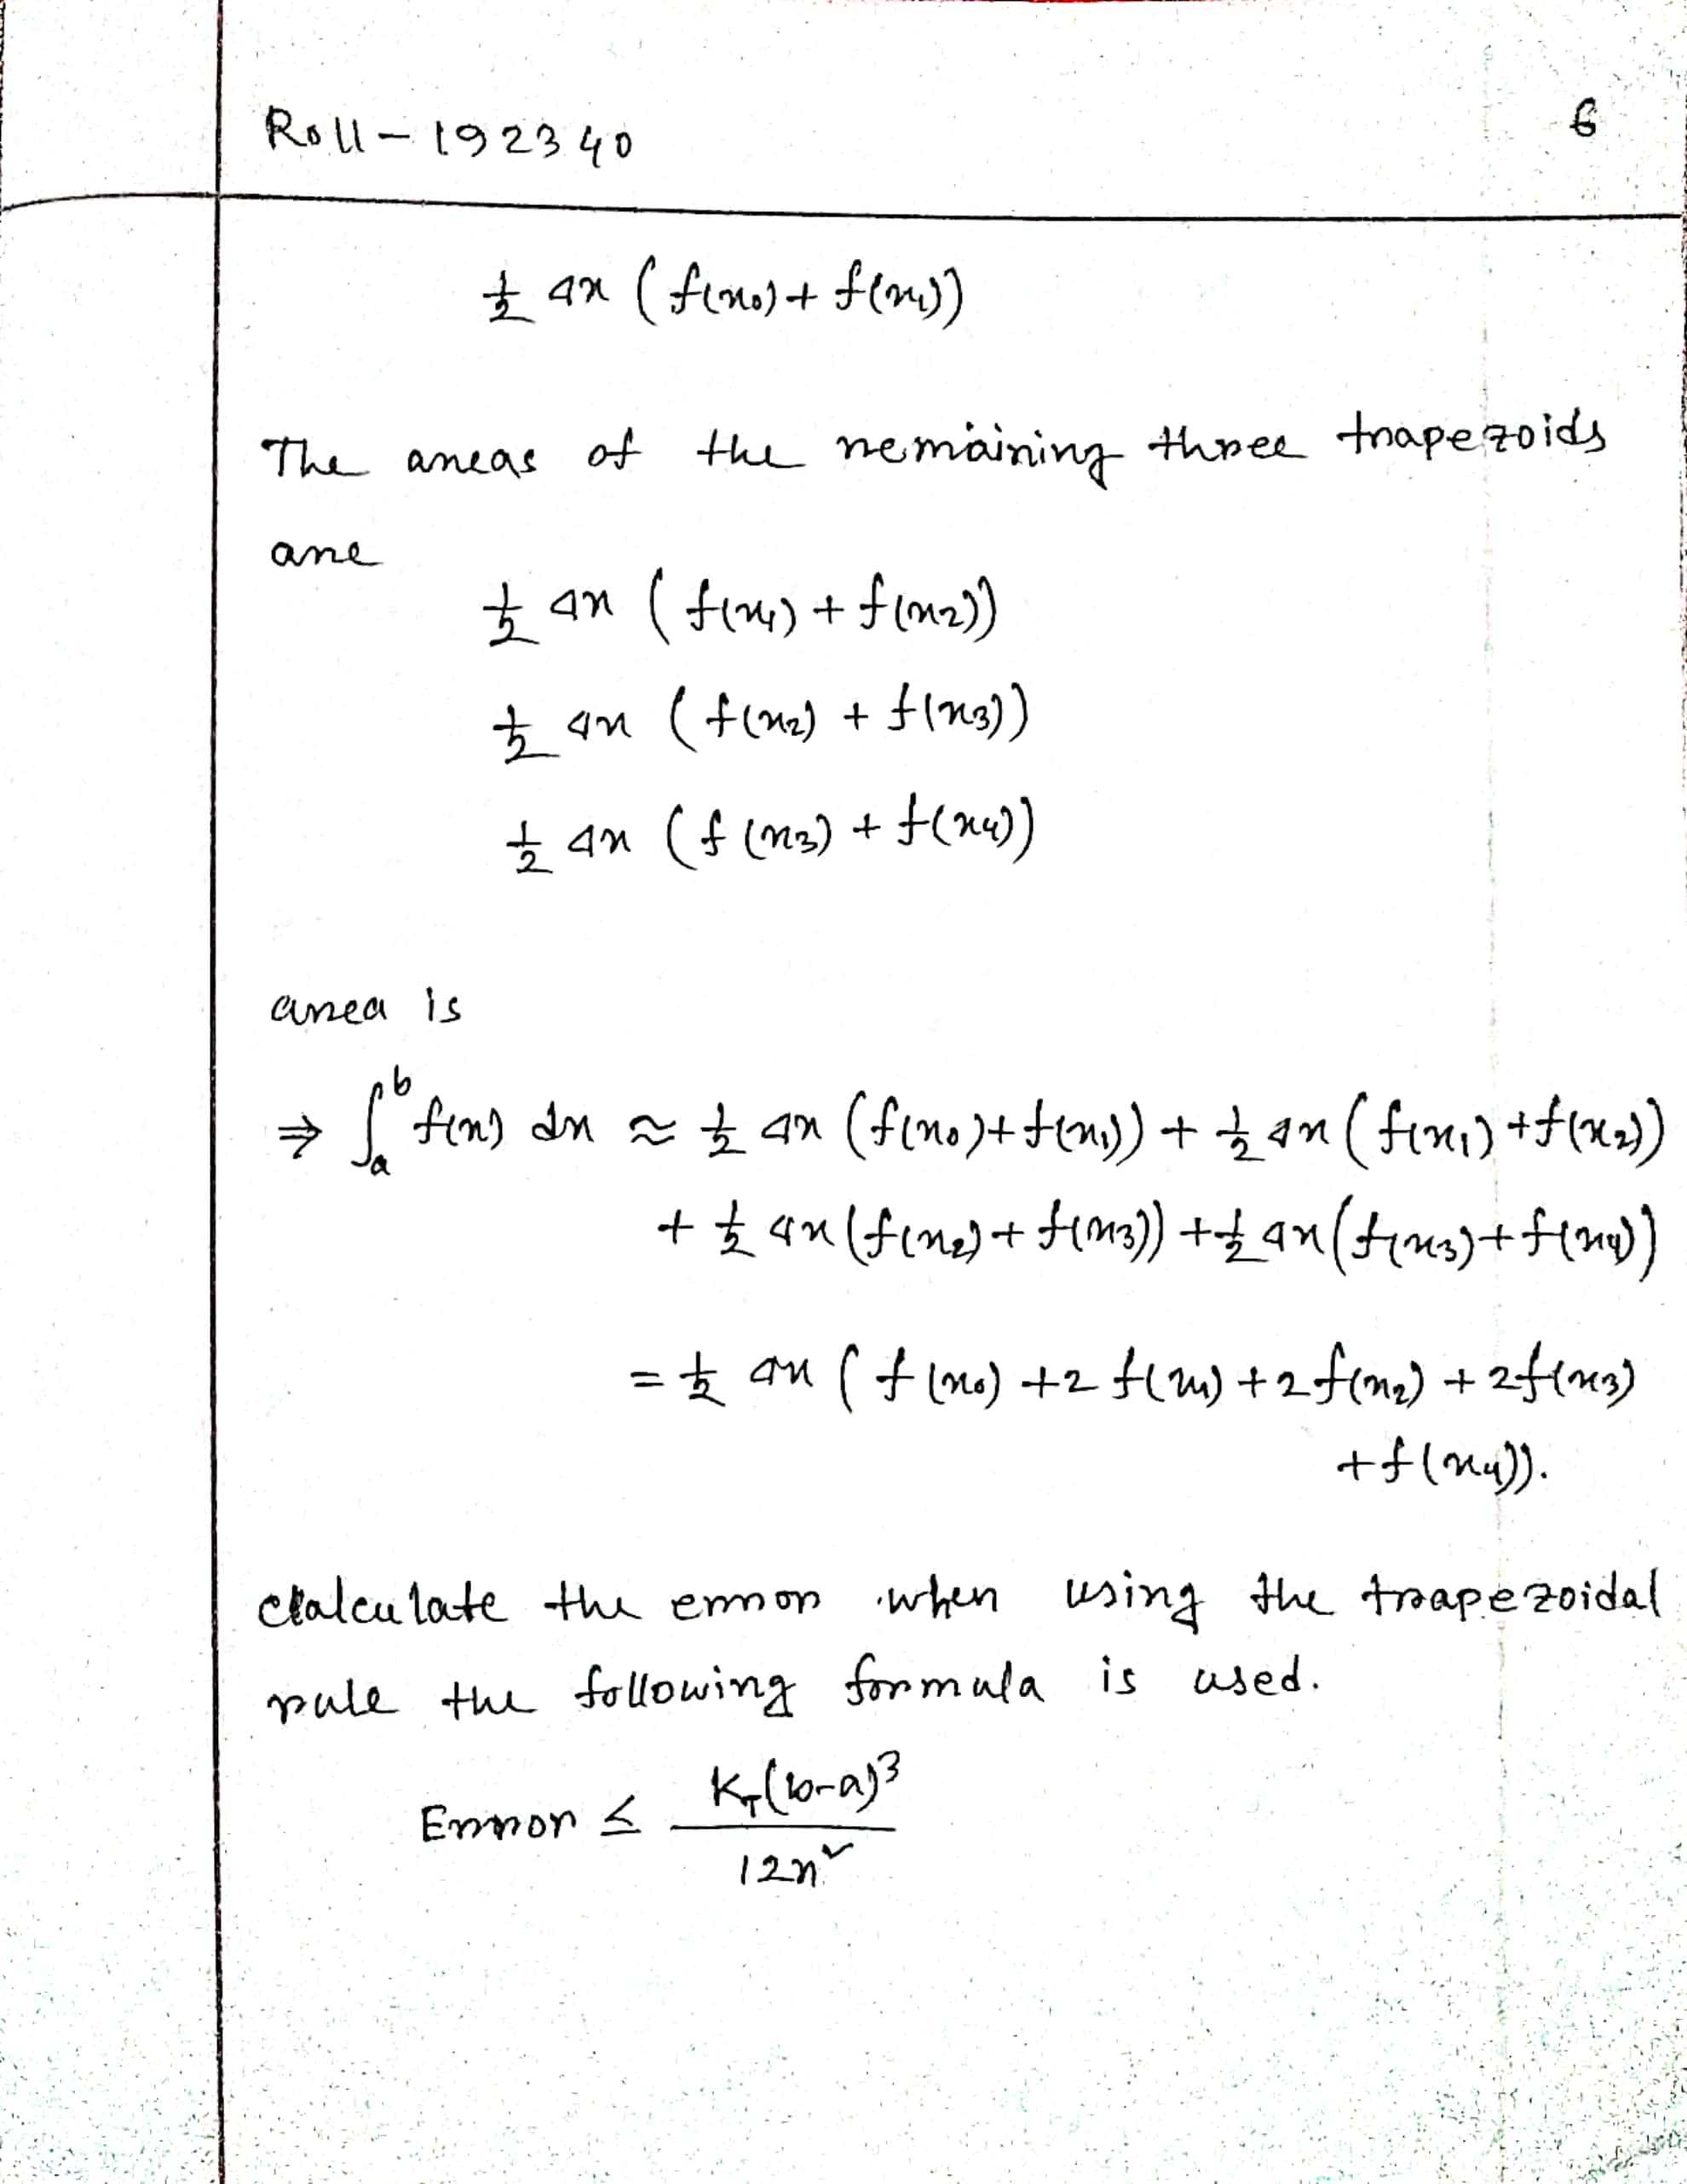 Roll - 192340
6
½ Δx (f(x₀) + f(x₁))
The areas of the remaining three trapezoids
are
½ Δx (f(x₁) + f(x₂))
½ Δx (f(x₂) + f(x₃))
½ Δx (f(x₃) + f(x₄))
area is
⇒ ∫ₐᵇ f(x) dx ≈ ½ Δx (f(x₀) + f(x₁)) + ½ Δx (f(x₁) + f(x₂))
+ ½ Δx (f(x₂) + f(x₃)) + ½ Δx (f(x₃) + f(x₄))
= ½ Δx (f(x₀) + 2 f(x₁) + 2 f(x₂) + 2 f(x₃)
+ f(x₄)).
Calculate the error when using the trapezoidal
rule the following formula is used.
Error ≤ K_T(b-a)³
12n²